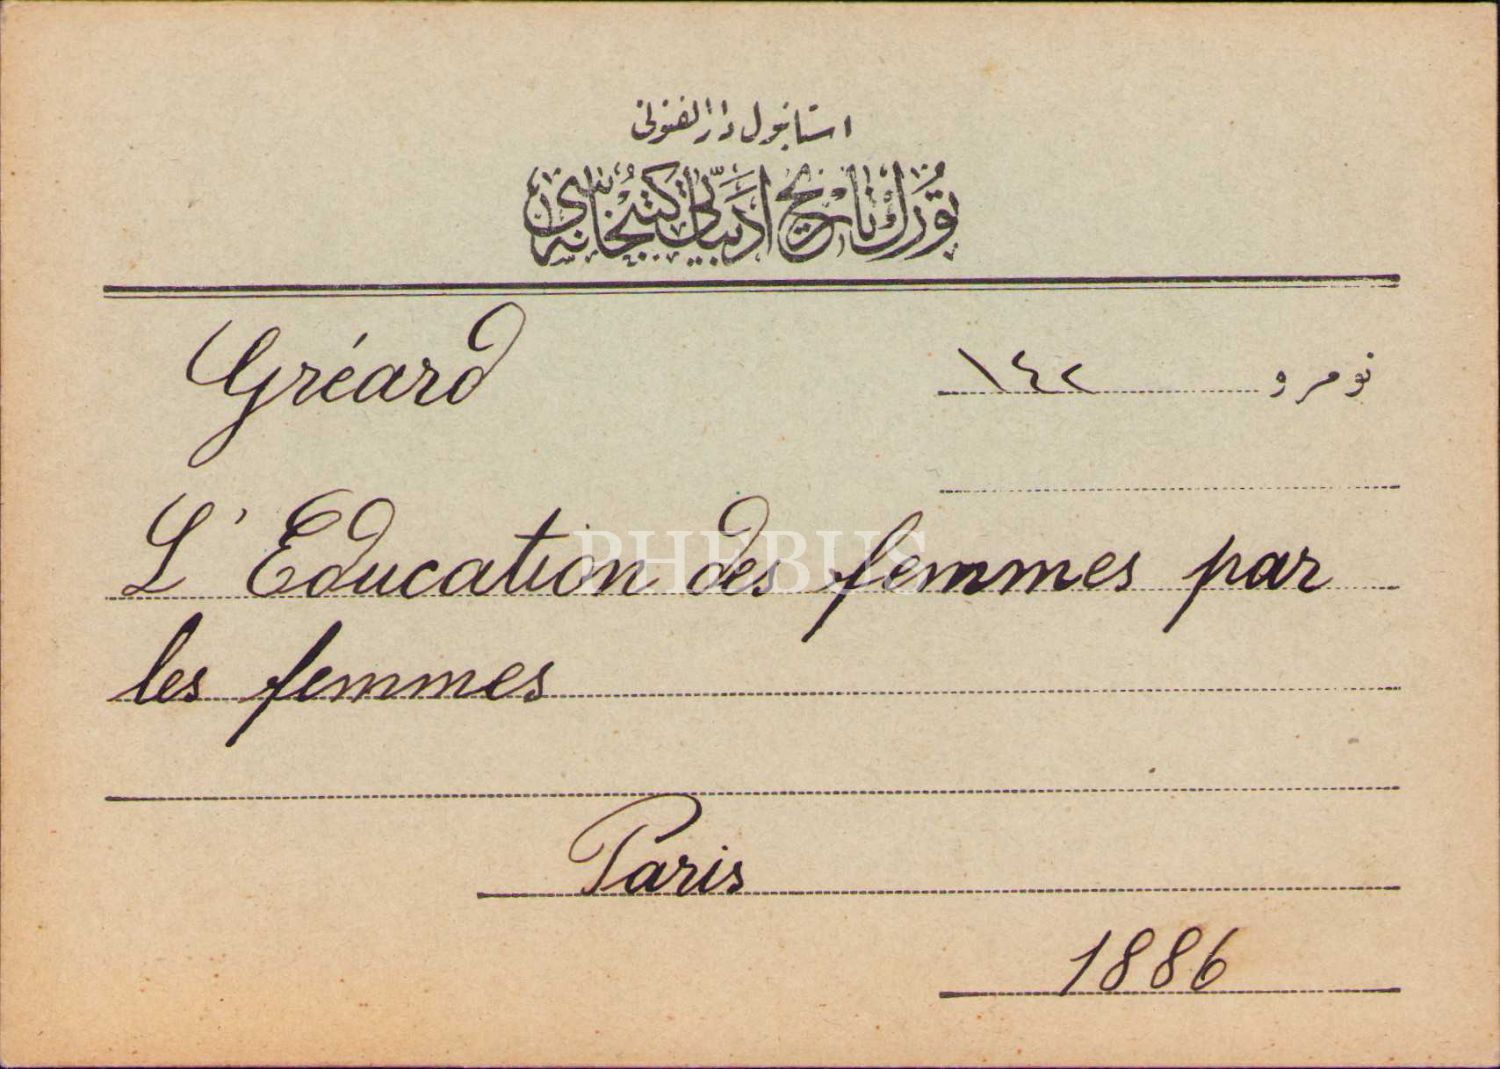 استانبول دار الفنونى
تورك تاريخ ادبياتى كتبخانه‌سى
Gréard
نومرو ١٤٢
L'Education des femmes par
les femmes
PHEBUS
Paris
1886